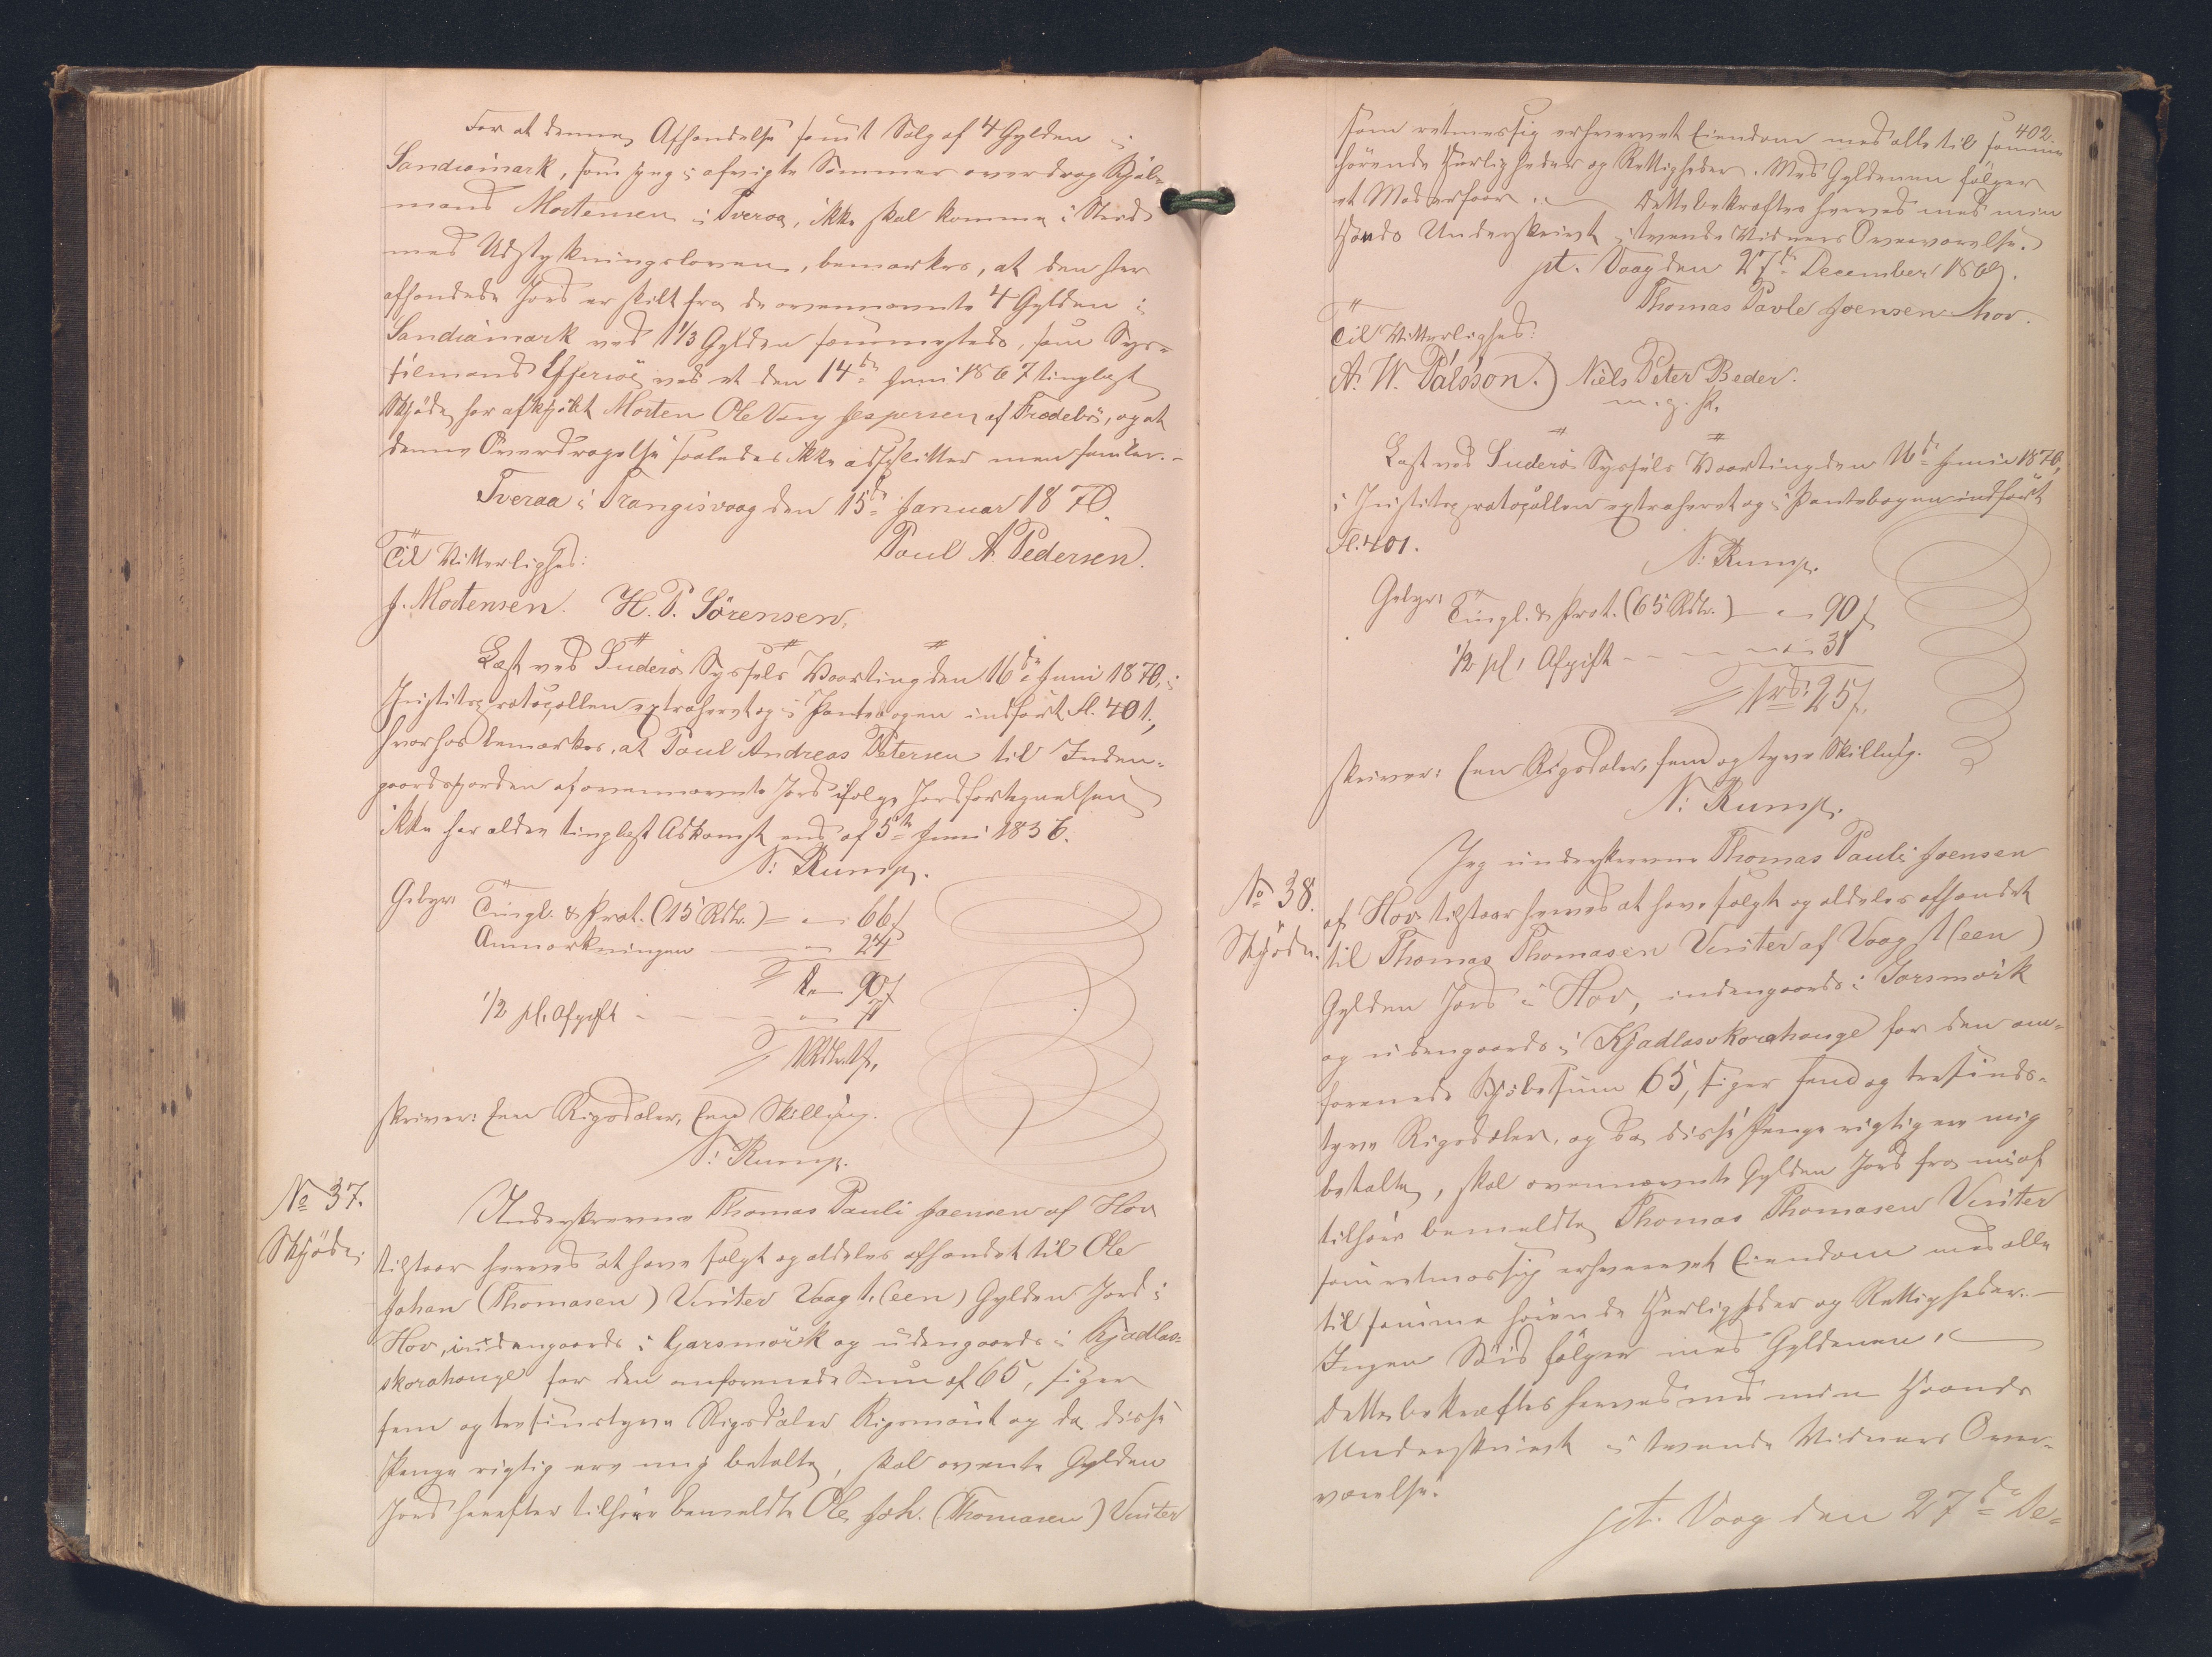 For at denne Afhændelse samt Salg af 4 Gylden i
Sandvimark, som jeg i afvigte Sommer overdrog Hjal-
mand Mortensen i Tveraa, ikke skal komme i Strid
med Udstykningsloven, bemærkes, at den her
afhændede Jord er skilt fra de ovennævnte 4 Gylden i
Sandvimark ved 1 1/3 Gylden sammesteds, som Sys-
selmand Effersøe ved et den 14de Juni 1867 tinglæst
Skjøde har afkjøbt Morten Ole Vang Jespersen af Frodebø, og at
denne Overdragelse saaledes ikke adsplitter men samler.-
Tveraa i Trangisvaag den 15de Januar 1870.
Poul A. Pedersen.
Til Vitterlighed:
J. Mortensen. H. P. Sörensen.
Læst ved Suderø Syssels Vaarting den 16de Juni 1870, i
Justitsprotocollen extraheret og i Pantebogen indført fl. 401.,
hvorhos bemærkes, at Poul Andreas Petersen til Inden-
gaardsjorden af ovennævnte Jord ifølge Jordfortegnelsen
ikke har ældre tinglæst Adkomst end af 5te Juni 1836.
N: Rump.
Gebyr: Tingl. & Prot. (15 Rdlr.) - " - 66 ß
Anmærkningen - " 24
" - 90 ß
1/2 pCt. Afgift - - - " 7
1 Rdlr. 1 ß,
skriver: Een Rigsdaler, Een Skilling.
N: Rump.
No 37.
Skjøde.
Underskrevne Thomas Pauli Joensen af Hov
tilstaar herved at have solgt og aldeles afhændet til Ole
Johan (Thomasen) Vinter Vaag 1. (een) Gylden Jord i
Hov, indengaards i Garsmörk og udengaards i Kjadlas-
skorahouge for den omforenede Sum af 65, siger
fem og tresindstyve Rigsdaler Rigsmønt og da disse
Penge rigtig ere mig betalte, skal ovenn Gylden
Jord herefter tilhøre bemeldte Ole Joh. (Thomasen) Vinter
402.
som retmæssig erhvervet Eiendom med alle til samme
hörende Herligheder og Rettigheder. Med Gyldenen følger
et Moderfaar. Dette bekræftes herved med min
Haands Underskrivt i tvende Vidners Overværelse.
pt. Vaag den 27de December 1869.
Thomas Pavle Joensen Hov.
Til Vitterlighed:
A. W. Pálsson. Niels Peter Beder.
m. g. P.
Læst ved Suderø Syssels Vaarting den 16de Juni 1870,
i Justitsprotocollen extraheret og i Pantebogen indført
Fl. 401.
N: Rump.
Gebyr: Tingl. & Prot. (65 Rdlr.) - " - 90 ß
1/2 pCt Afgift - - - " 31
1 rd: 25 ß,
skriver: Een Rigsdaler, fem og tyve Skilling.
N: Rump.
No 38.
Skjøde.
Jeg underskrevne Thomas Pauli Joensen
af Hov tilstaar herved at have solgt og aldeles afhændet
til Thomas Thomasen Vinter af Vaag 1 (een)
Gylden Jord i Hov, indengaards i Gorsmörk
og udengaards i Kjadlaskorahouge for den om-
forenede Kjøbesum 65, siger fem og tresinds-
tyve Rigsdaler, og da disse Penge rigtig ere mig
betalte, skal ovennævnte Gylden Jord fra nu af
tilhøre bemeldte Thomas Thomasen Vinter
som retmæssig erhvervet Eiendom med alle
til samme hørende Herligheder og Rettigheder.-
Ingen følger med Gyldenen.
Dette bekræftes herved med min Haands
Underskrivt i tvende Vidners Over-
værelse.
pt. Vaag den 27de De-